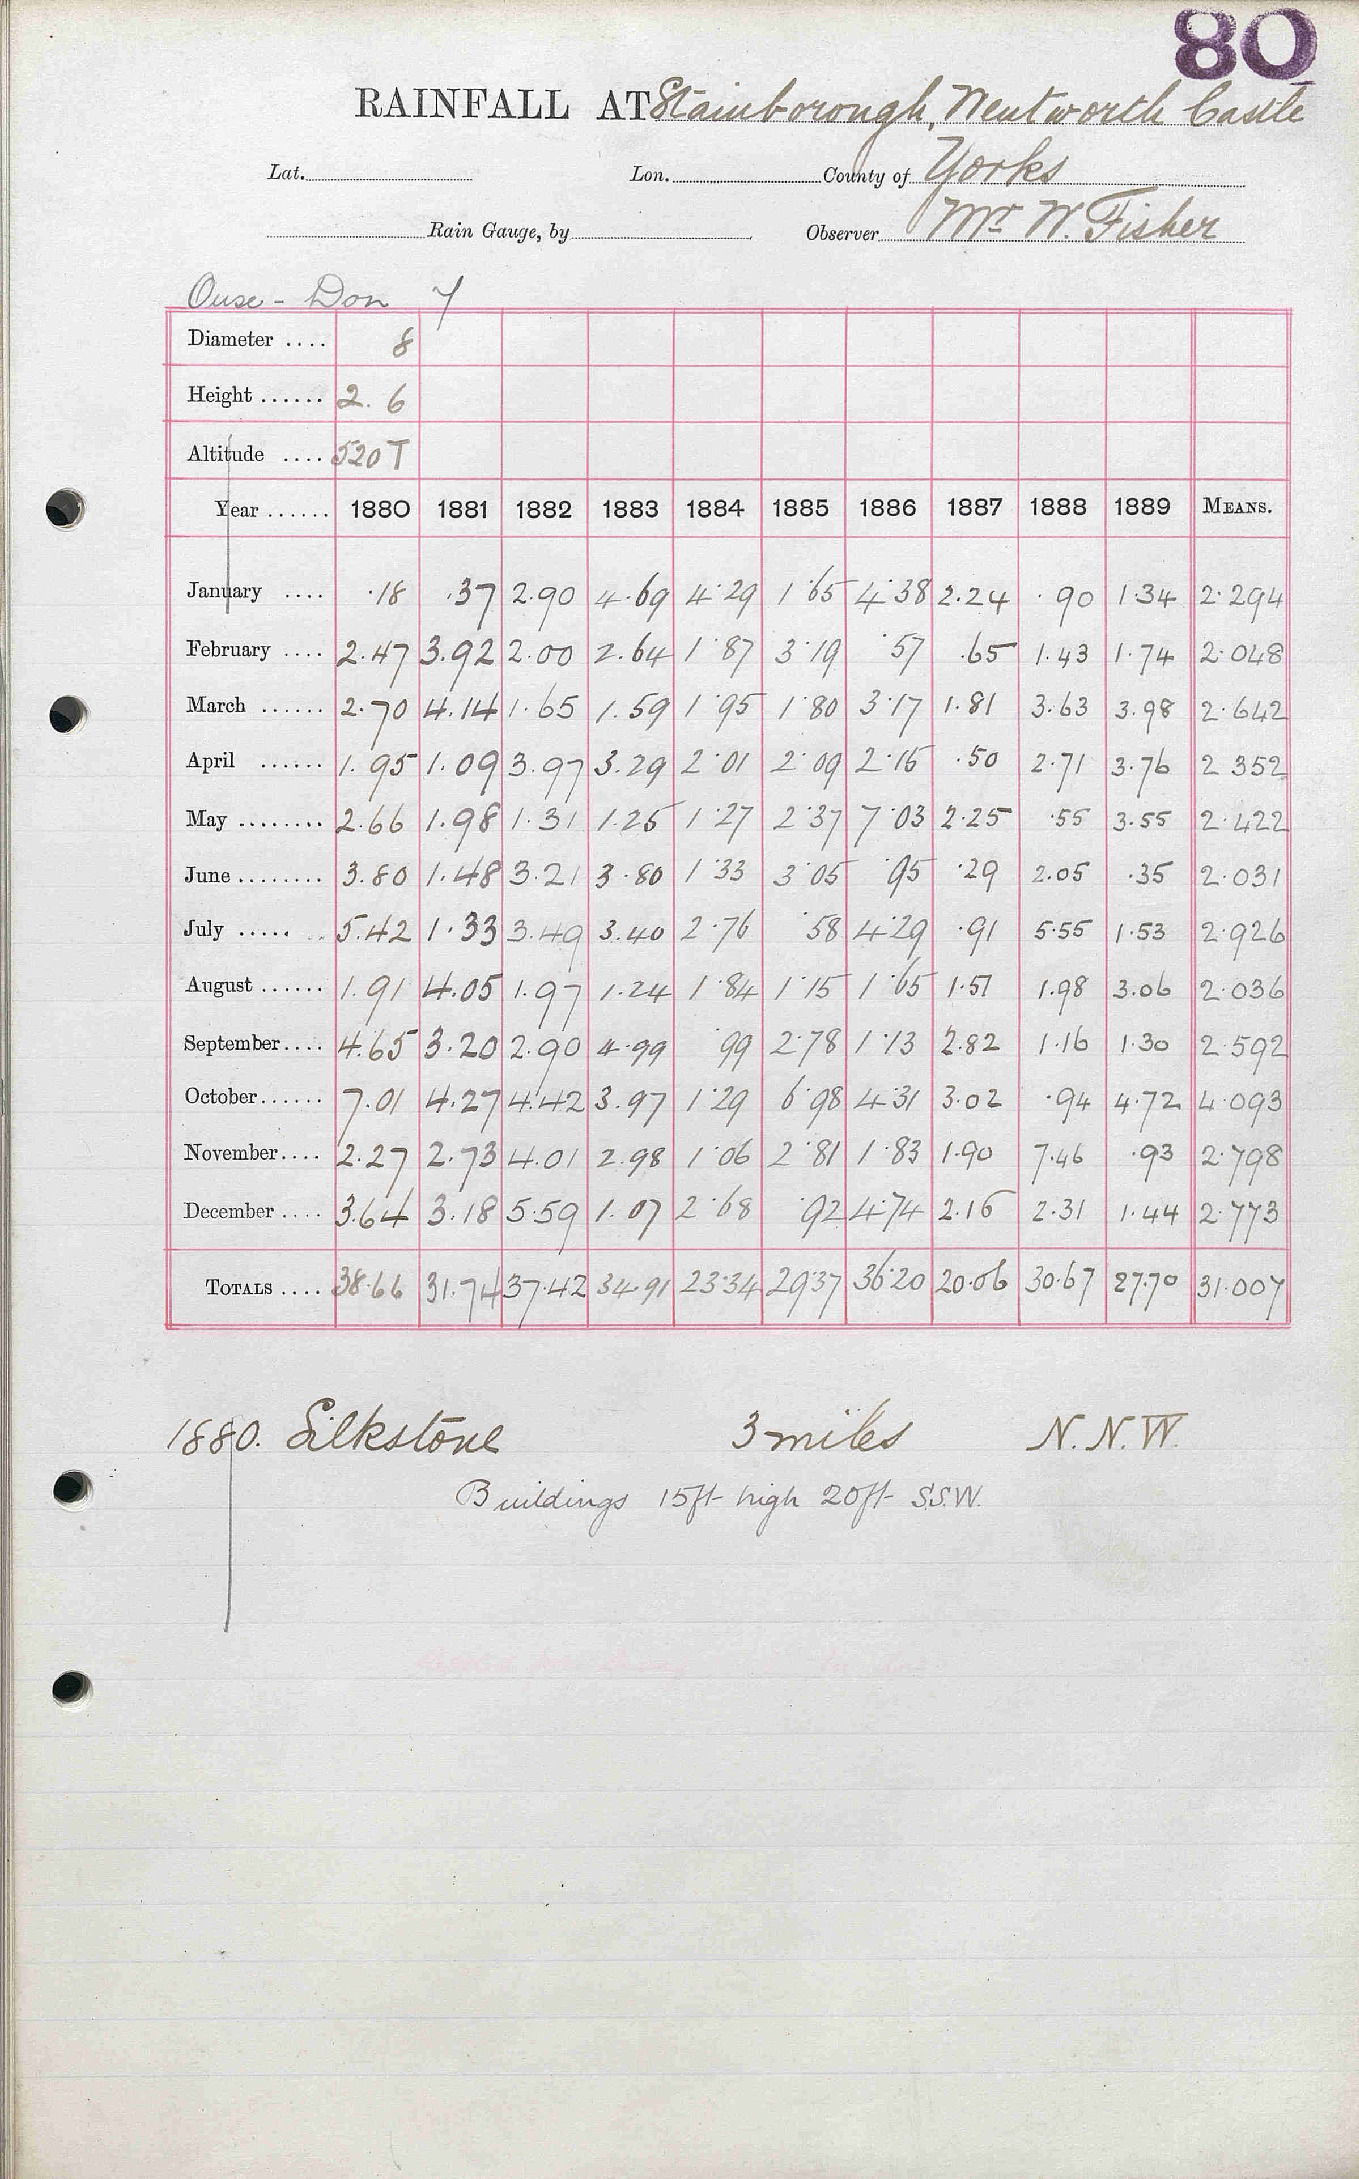 80
RAINFALL AT Stainborough, Wentworth Castle
Lat. Lon. County of Yorks
Rain Gauge, by Observer Mr W. Fisher
Ouse - Don 7
Diameter .... 8
Height ...... 2.6
Altitude .... 520 T
Year ...... 1880 1881 1882 1883 1884 1885 1886 1887 1888 1889 MEANS.
January .... .18 .37 2.90 4.69 4.29 1.65 4.38 2.24 .90 1.34 2.294
February .... 2.47 3.92 2.00 2.64 1.87 3.19 .57 .65 1.43 1.74 2.048
March ...... 2.70 4.14 1.65 1.59 1.95 1.80 3.17 1.81 3.63 3.98 2.642
April ...... 1.95 1.09 3.97 3.29 2.01 2.09 2.15 .50 2.71 3.76 2 352
May ........ 2.66 1.98 1.31 1.25 1.27 2.37 7.03 2.25 .55 3.55 2.422
June ........ 3.80 1.48 3.21 3.80 1.33 3.05 .95 .29 2.05 .35 2.031
July ..... 5.42 1.33 3.49 3.40 2.76 .58 4.29 .91 5.55 1.53 2.926
August ...... 1.91 4.05 1.97 1.24 1.84 1.15 1.65 1.57 1.98 3.06 2.036
September .... 4.65 3.20 2.90 4.99 .99 2.78 1.13 2.82 1.16 1.30 2.592
October ...... 7.01 4.27 4.42 3.97 1.29 6.98 4.31 3.02 .94 4.72 4.093
November .... 2.27 2.73 4.01 2.98 1.06 2.81 1.83 1.90 7.46 .93 2.798
December .... 3.64 3.18 5.59 1.07 2.68 .92 4.74 2.16 2.31 1.44 2.773
TOTALS .... 38.66 31.74 37.42 34.91 23.34 29.37 36.20 20.06 30.67 27.70 31.007
1880. Silkstone 3 miles N.N.W.
Buildings 15ft high 20ft S.S.W.